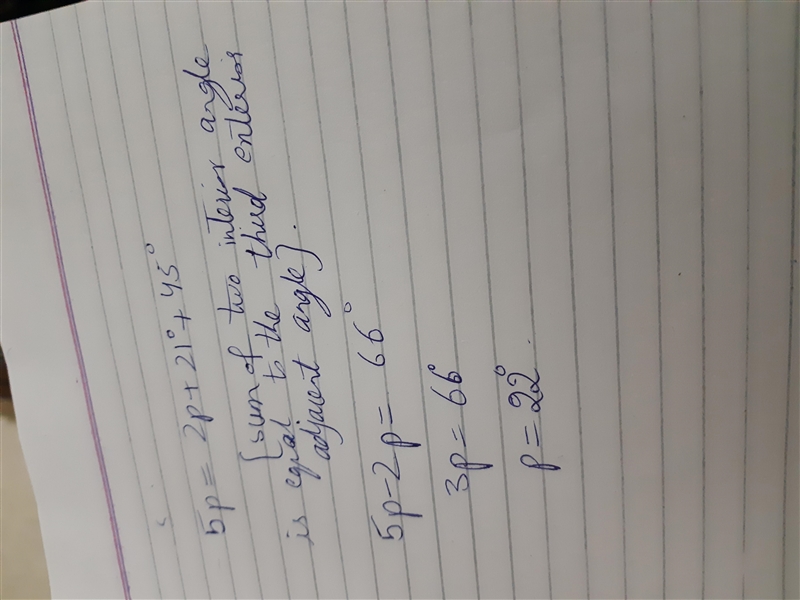 5p = 2p + 21° + 45°
{sum of two interior angle
is equal to the third exterior
adjacent angle}.
5p - 2p = 66°
3p = 66°
p = 22°.